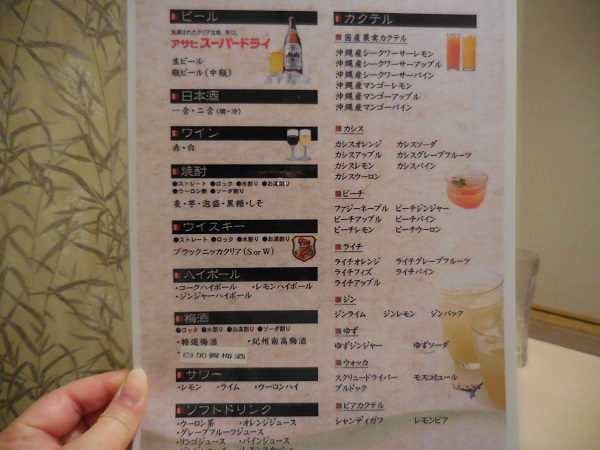 ビール
洗練されたクリアな味、辛口。
アサヒスーパードライ
Asahi
生ビール
瓶ビール(中瓶)
日本酒
一合・二合(燗・冷)
ワイン
赤・白
焼酎
●ストレート ●ロック ●水割り ●お湯割り
●ウーロン割 ●ソーダ割り
麦・芋・泡盛・黒糖・しそ
ウイスキー
●ストレート ●ロック ●水割り ●お湯割り
ブラックニッカクリア(S or W)
ハイボール
・コークハイボール ・レモンハイボール
・ジンジャーハイボール
梅酒
●ロック ●水割り ●お湯割り ●ソーダ割り
・特選梅酒 ・紀州南高梅酒
白加賀梅酒
サワー
・レモン ・ライム ・ウーロンハイ
ソフトドリンク
・ウーロン茶 ・オレンジジュース
・グレープフルーツジュース
・リンゴジュース ・パインジュース
カクテル
国産果実カクテル
沖縄産シークワーサーレモン
沖縄産シークワーサーアップル
沖縄産シークワーサーパイン
沖縄産マンゴーレモン
沖縄産マンゴーアップル
沖縄産マンゴーパイン
カシス
カシスオレンジ カシスソーダ
カシスアップル カシスグレープフルーツ
カシスレモン カシスパイン
カシスウーロン
ピーチ
ファジーネーブル ピーチジンジャー
ピーチアップル ピーチパイン
ピーチレモン ピーチウーロン
ライチ
ライチオレンジ ライチグレープフルーツ
ライチフィズ ライチパイン
ライチアップル
ジン
ジンライム ジンレモン ジンバック
ゆず
ゆずジンジャー ゆずソーダ
ウォッカ
スクリュードライバー モスコミュール
ブルドック
ビアカクテル
シャンディガフ レモンビア